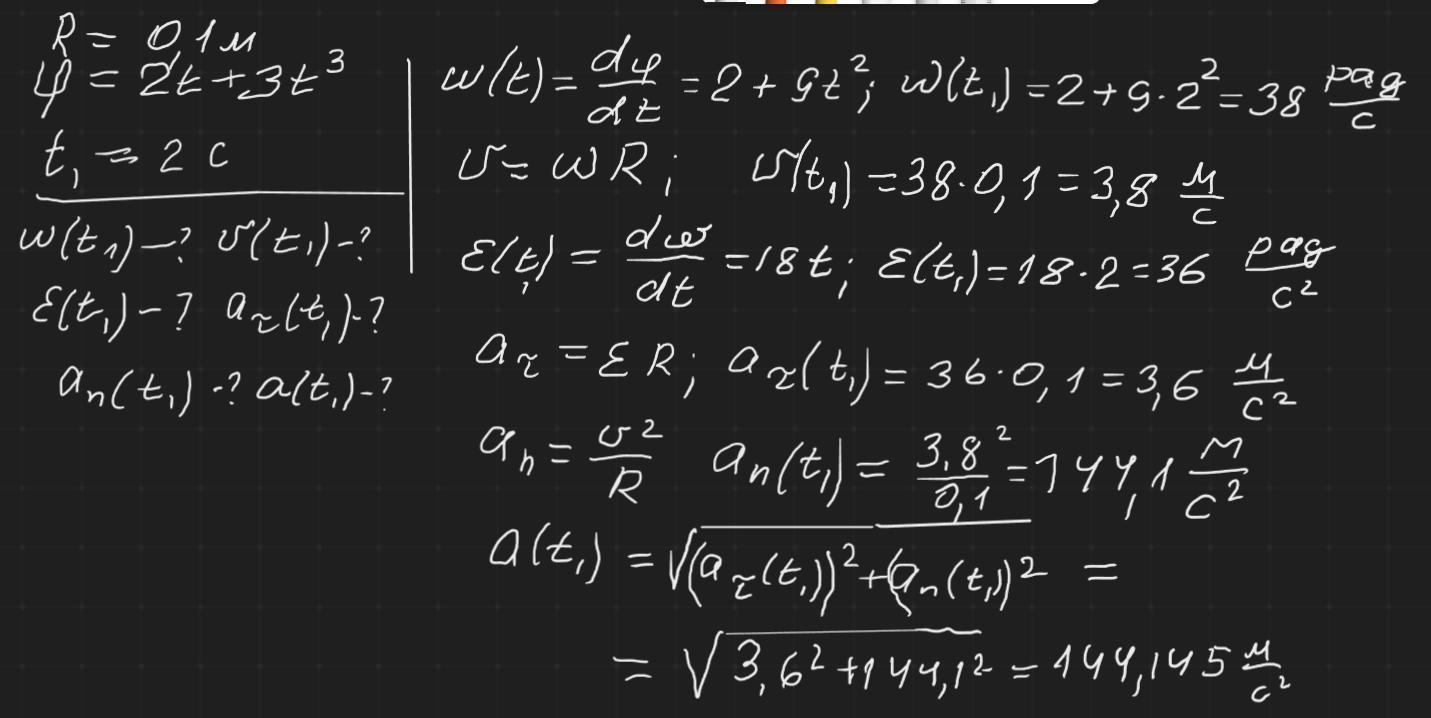 R = 0,1 м
φ = 2t + 3t³
t₁ = 2 с
ω(t₁) – ? υ(t₁) – ?
ε(t₁) – ? a_τ(t₁) – ?
aₙ(t₁) – ? a(t₁) – ?
ω(t) = dφ/dt = 2 + 9t²; ω(t₁) = 2 + 9·2² = 38 рад/с
υ = ωR; υ(t₁) = 38·0,1 = 3,8 м/с
ε(t) = dω/dt = 18t; ε(t₁) = 18·2 = 36 рад/с²
a_τ = εR; a_τ(t₁) = 36·0,1 = 3,6 м/с²
aₙ = υ²/R aₙ(t₁) = 3,8²/0,1 = 144,1 м/с²
a(t₁) = √((a_τ(t₁))² + (aₙ(t₁))²) =
= √(3,6² + 144,1²) = 144,145 м/с²